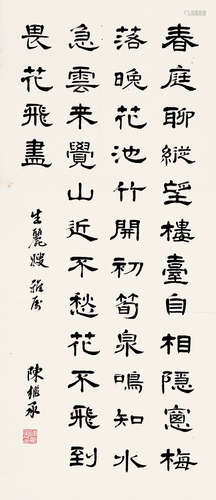 春庭聊縱望樓臺自相隱窻梅
落晚花池竹開初筍泉鳴知水
急雲来覺山近不愁花不飛到
畏花飛盡
生麗嫂雅屬
陳繼承